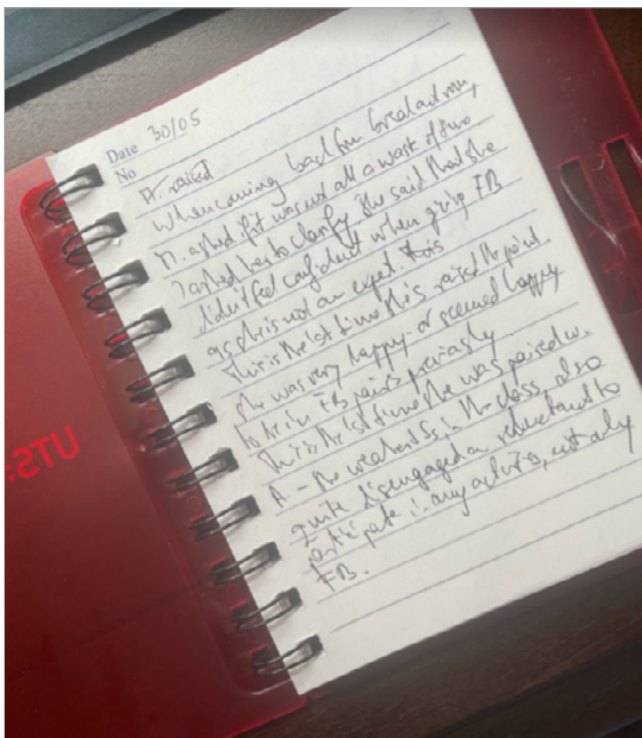 Date 30/05
No
A. raised
When coming back from breakout room,
M. asked if it was not all a waste of time
I asked her to clarify. She said that she
didn't feel confident when giving FB
as she is not an expert. This
This is the 1st time this is raised the point
She was very happy or seemed happy
to be in FB pairs previously
This is the 1st time she was paired w.
A – the weakest S in the class, also
quite disengaged and reluctant to
participate in any activities, not only
FB.
UTS: